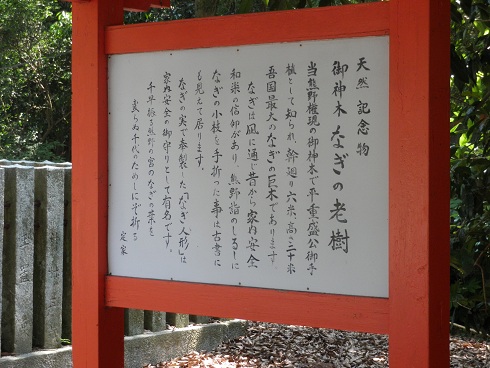 天然記念物
御神木 なぎの老樹
当熊野権現の御神木で平重盛公御手
植として知られ、幹廻り六米、高さ二十米
吾国最大のなぎの巨木であります。
なぎは凪に通じ昔から家内安全
和楽の信仰があり、熊野詣のしるしに
なぎの小枝を手折った事は古書に
も見えて居ります。
なぎの実で奉製した「なぎ人形」は
家内安全の御守りとして有名です。
千早振る熊野の宮のなぎの葉を
変らぬ千代のためしにぞ折る
定家